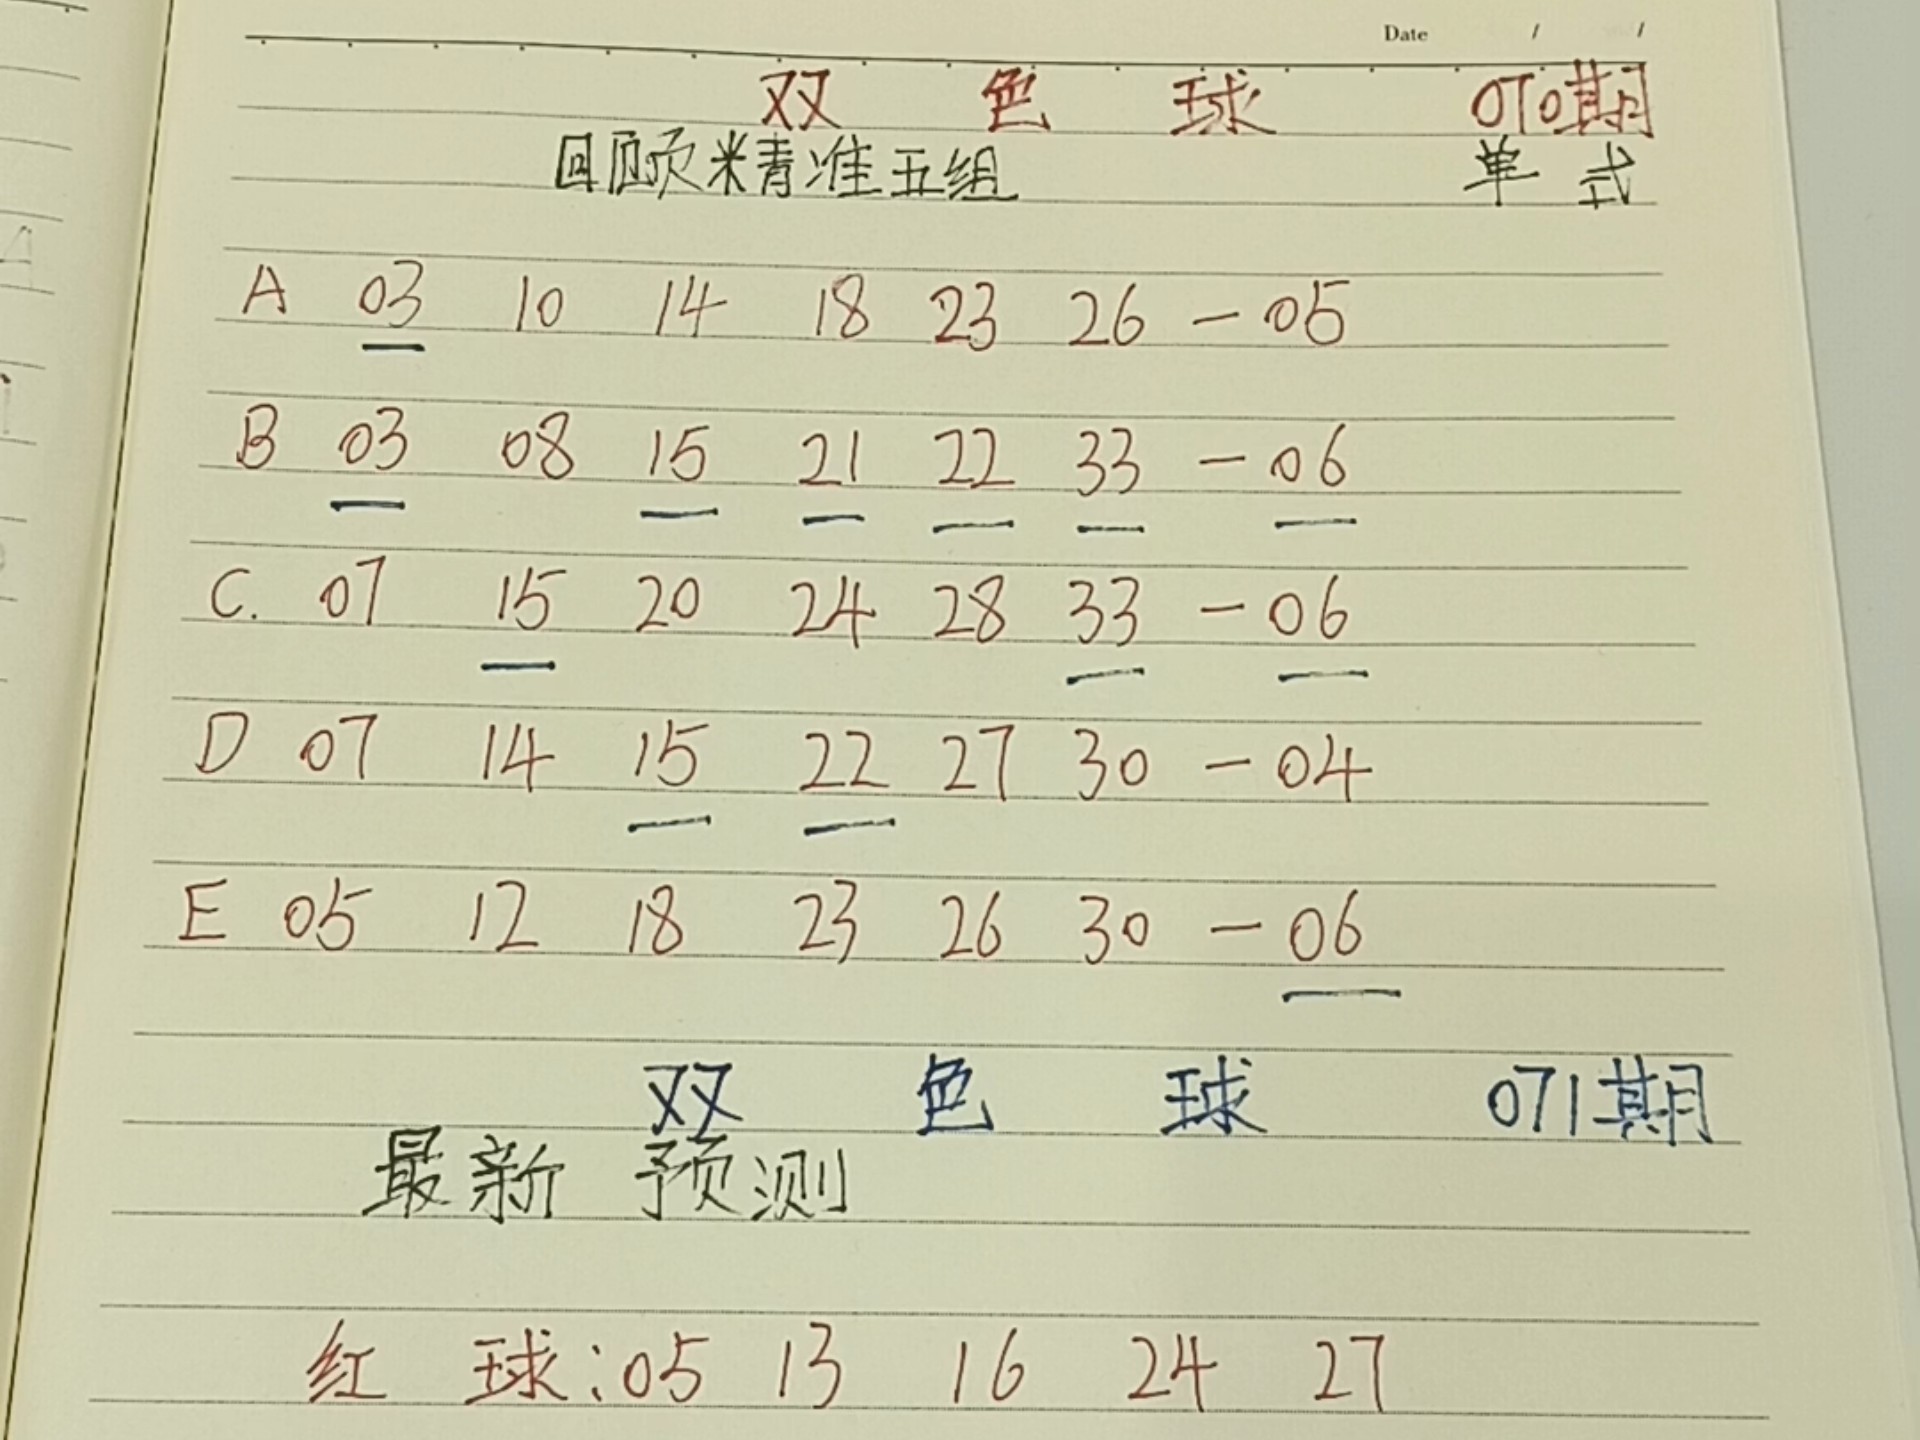 Date / /
双色球 070期
回顾精准五组 单式
A 03 10 14 18 23 26 - 05
B 03 08 15 21 22 33 - 06
C. 07 15 20 24 28 33 - 06
D 07 14 15 22 27 30 - 04
E 05 12 18 23 26 30 - 06
双色球 071期
最新预测
红球: 05 13 16 24 27